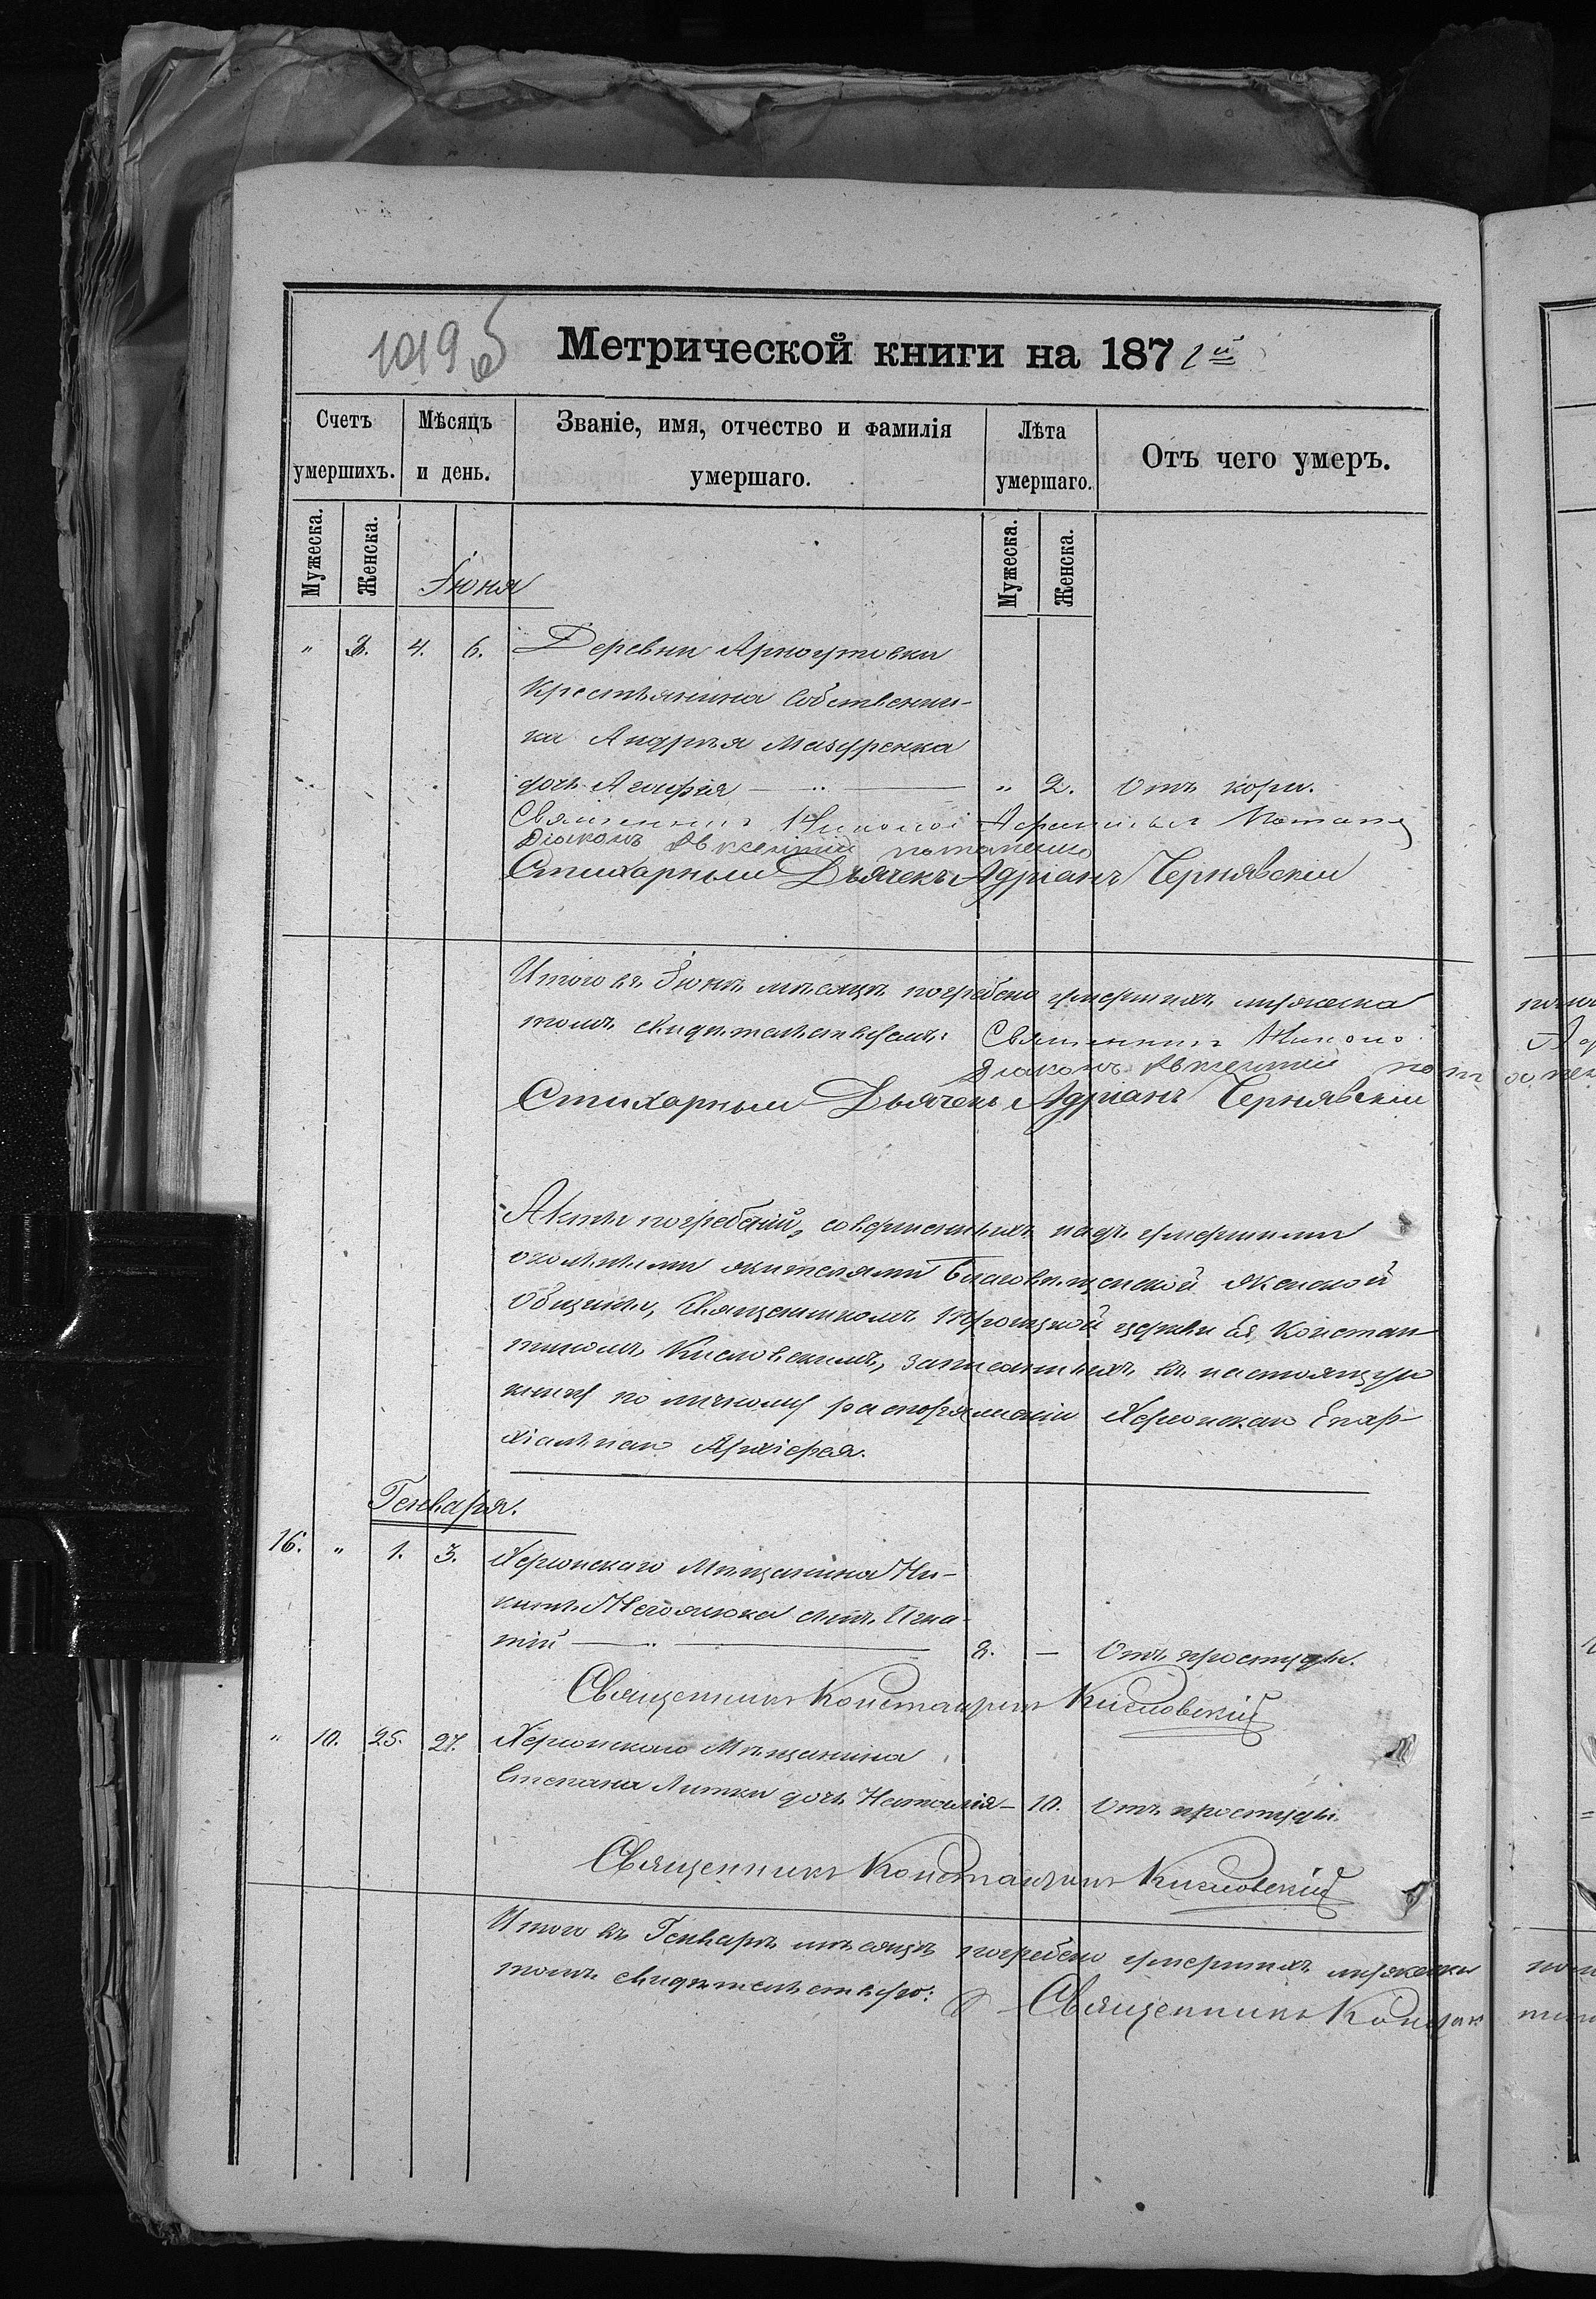 1019 об
Метрической книги на 187
Счетъ умершихъ.
Мѣсяцъ и день.
Званіе, имя, отчество и фамилія умершаго.
Лѣта умершаго.
Отъ чего умеръ.
Мужеска.
Женска.
Мужеска.
Женска.
Іюня
" 3. 4. 6. Деревни Арнаутовки
крестьянина собственни-
ка Андрея Мазуренка
дочь Агафія — " 2. Отъ кори.
Священникъ
Діаконъ Авксентій Потапенко
Стихарный Дьячекъ Адріанъ Чернявскій
Итого въ Іюнѣ мѣсяцѣ погребено умершихъ мужеска
томъ свидѣтельствуемъ: Священникъ
Діаконъ Авксентій
Стихарный Дьячекъ Адріанъ Чернявскій
Акты погребеній, совершенныхъ надъ умершими
окольными жителями Благовѣщенской женской
общины, Священникомъ Троицкой церкви ея Констан-
тиномъ Кисловскимъ, записанныхъ въ настоящую
книгу по личному распоряженію Херсонскаго Епар-
хіальнаго Архіерея.
Генваря.
16. " 1. 3. Херсонскаго Мѣщанина Ни-
киты сынъ Игна-
тій — 2. — Отъ простуды.
Священникъ Константинъ Кисловскій
" 10. 25. 27. Херсонскаго Мѣщанина
Степана Литки дочь Наталія — 10. Отъ простуды.
Священникъ Константинъ Кисловскій
Итого въ Генварѣ мѣсяцѣ погребено умершихъ мужеска
томъ свидѣтельствую: Священникъ Констан